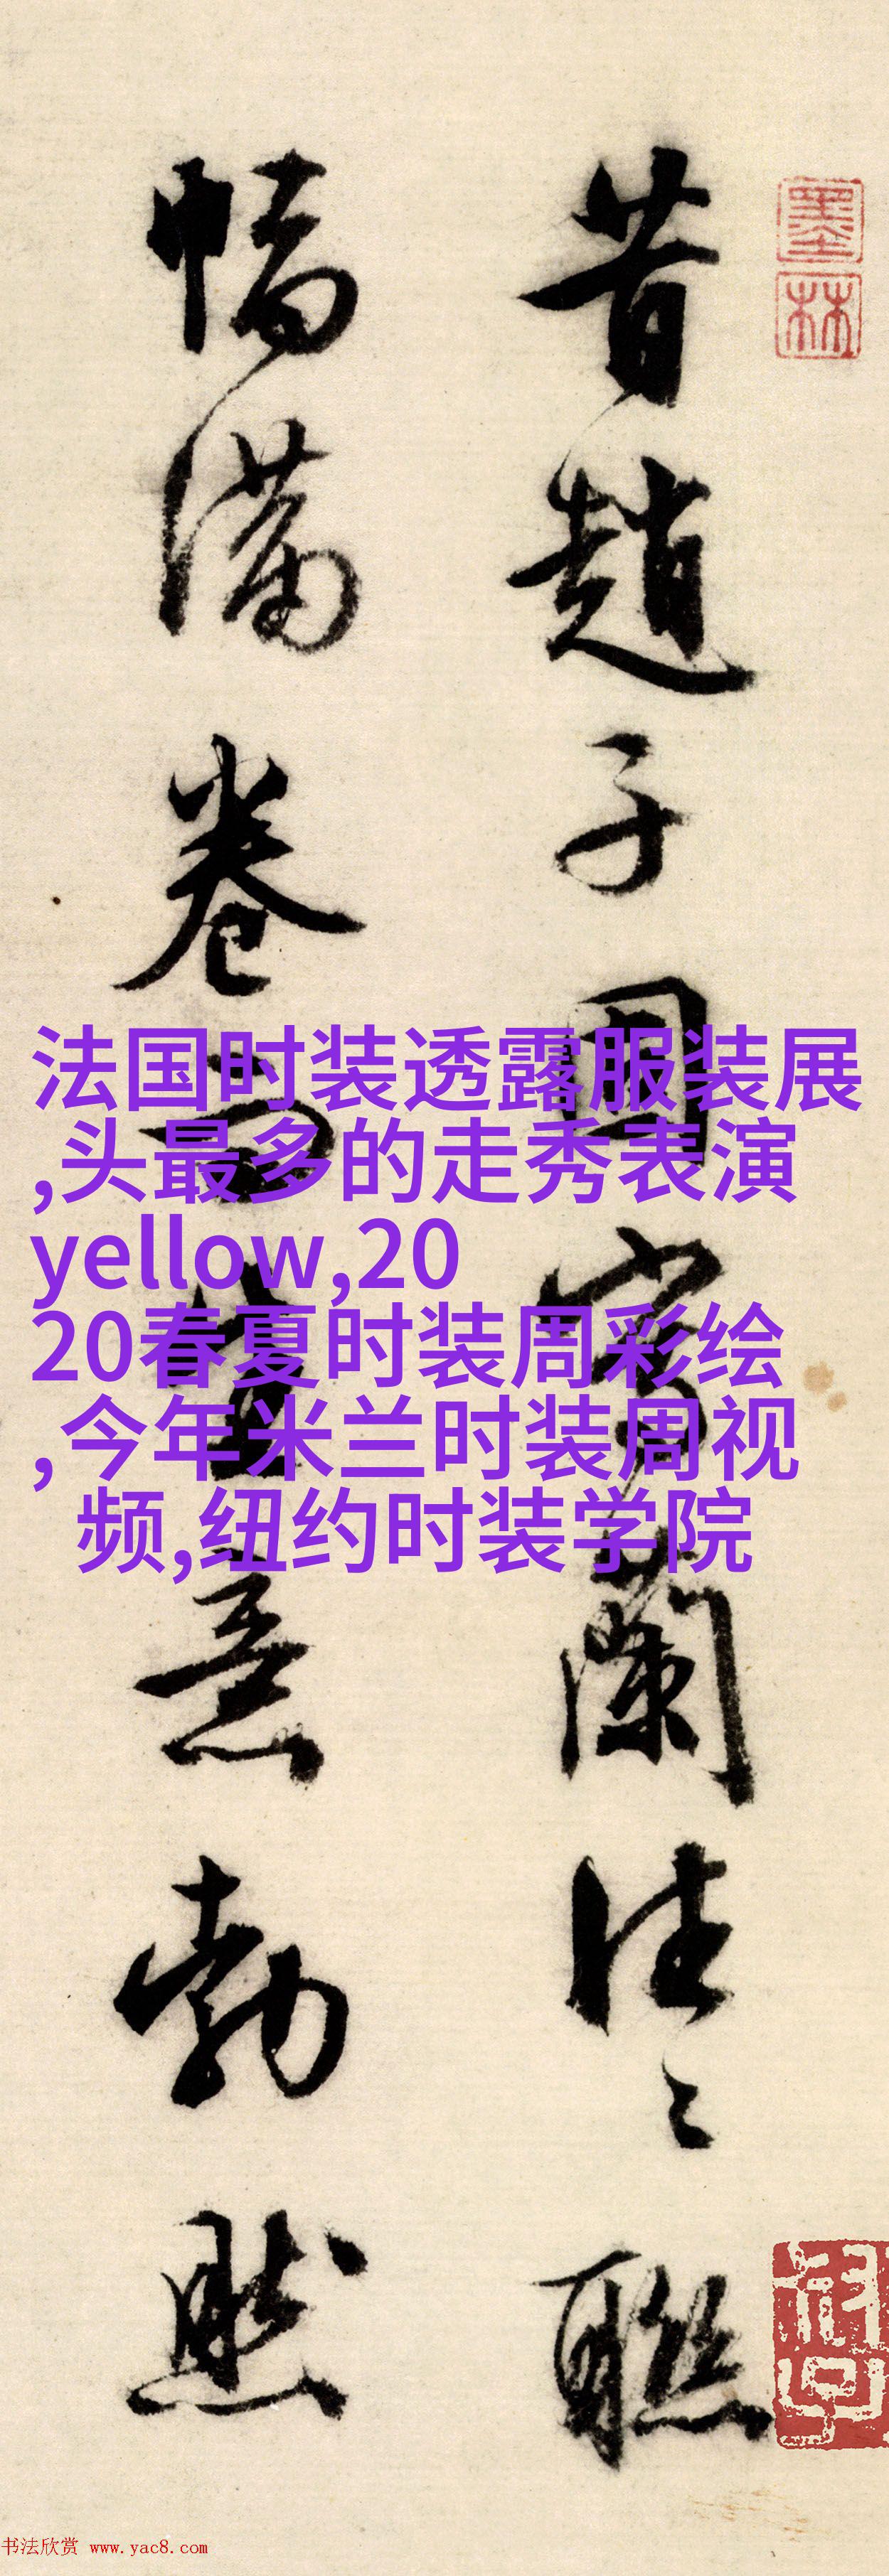 昔趙子固寫蘭往〻聯
幅滿卷而生意勃然
墨林
法国时装透露服装展
,头最多的走秀表演
yellow,20
20春夏时装周彩绘
,今年米兰时装周视
频,纽约时装学院
书法欣赏 www.yac8.com